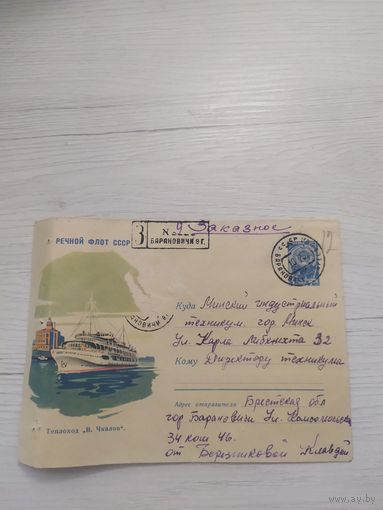 Заказное
З N
БАРАНОВИЧИ 9 Г.
РЕЧНОЙ ФЛОТ СССР
12
Куда Минский индустриальный
техникум. гор. Минск
Ул. Карла Либкнехта 32
Кому Директору техникума
Адрес отправителя Брестская обл
гор Барановичи Ул. Комсомольская
34 ком 46.
от Березниковой Клавдии
Теплоход „В. Чкалов".
ay.by